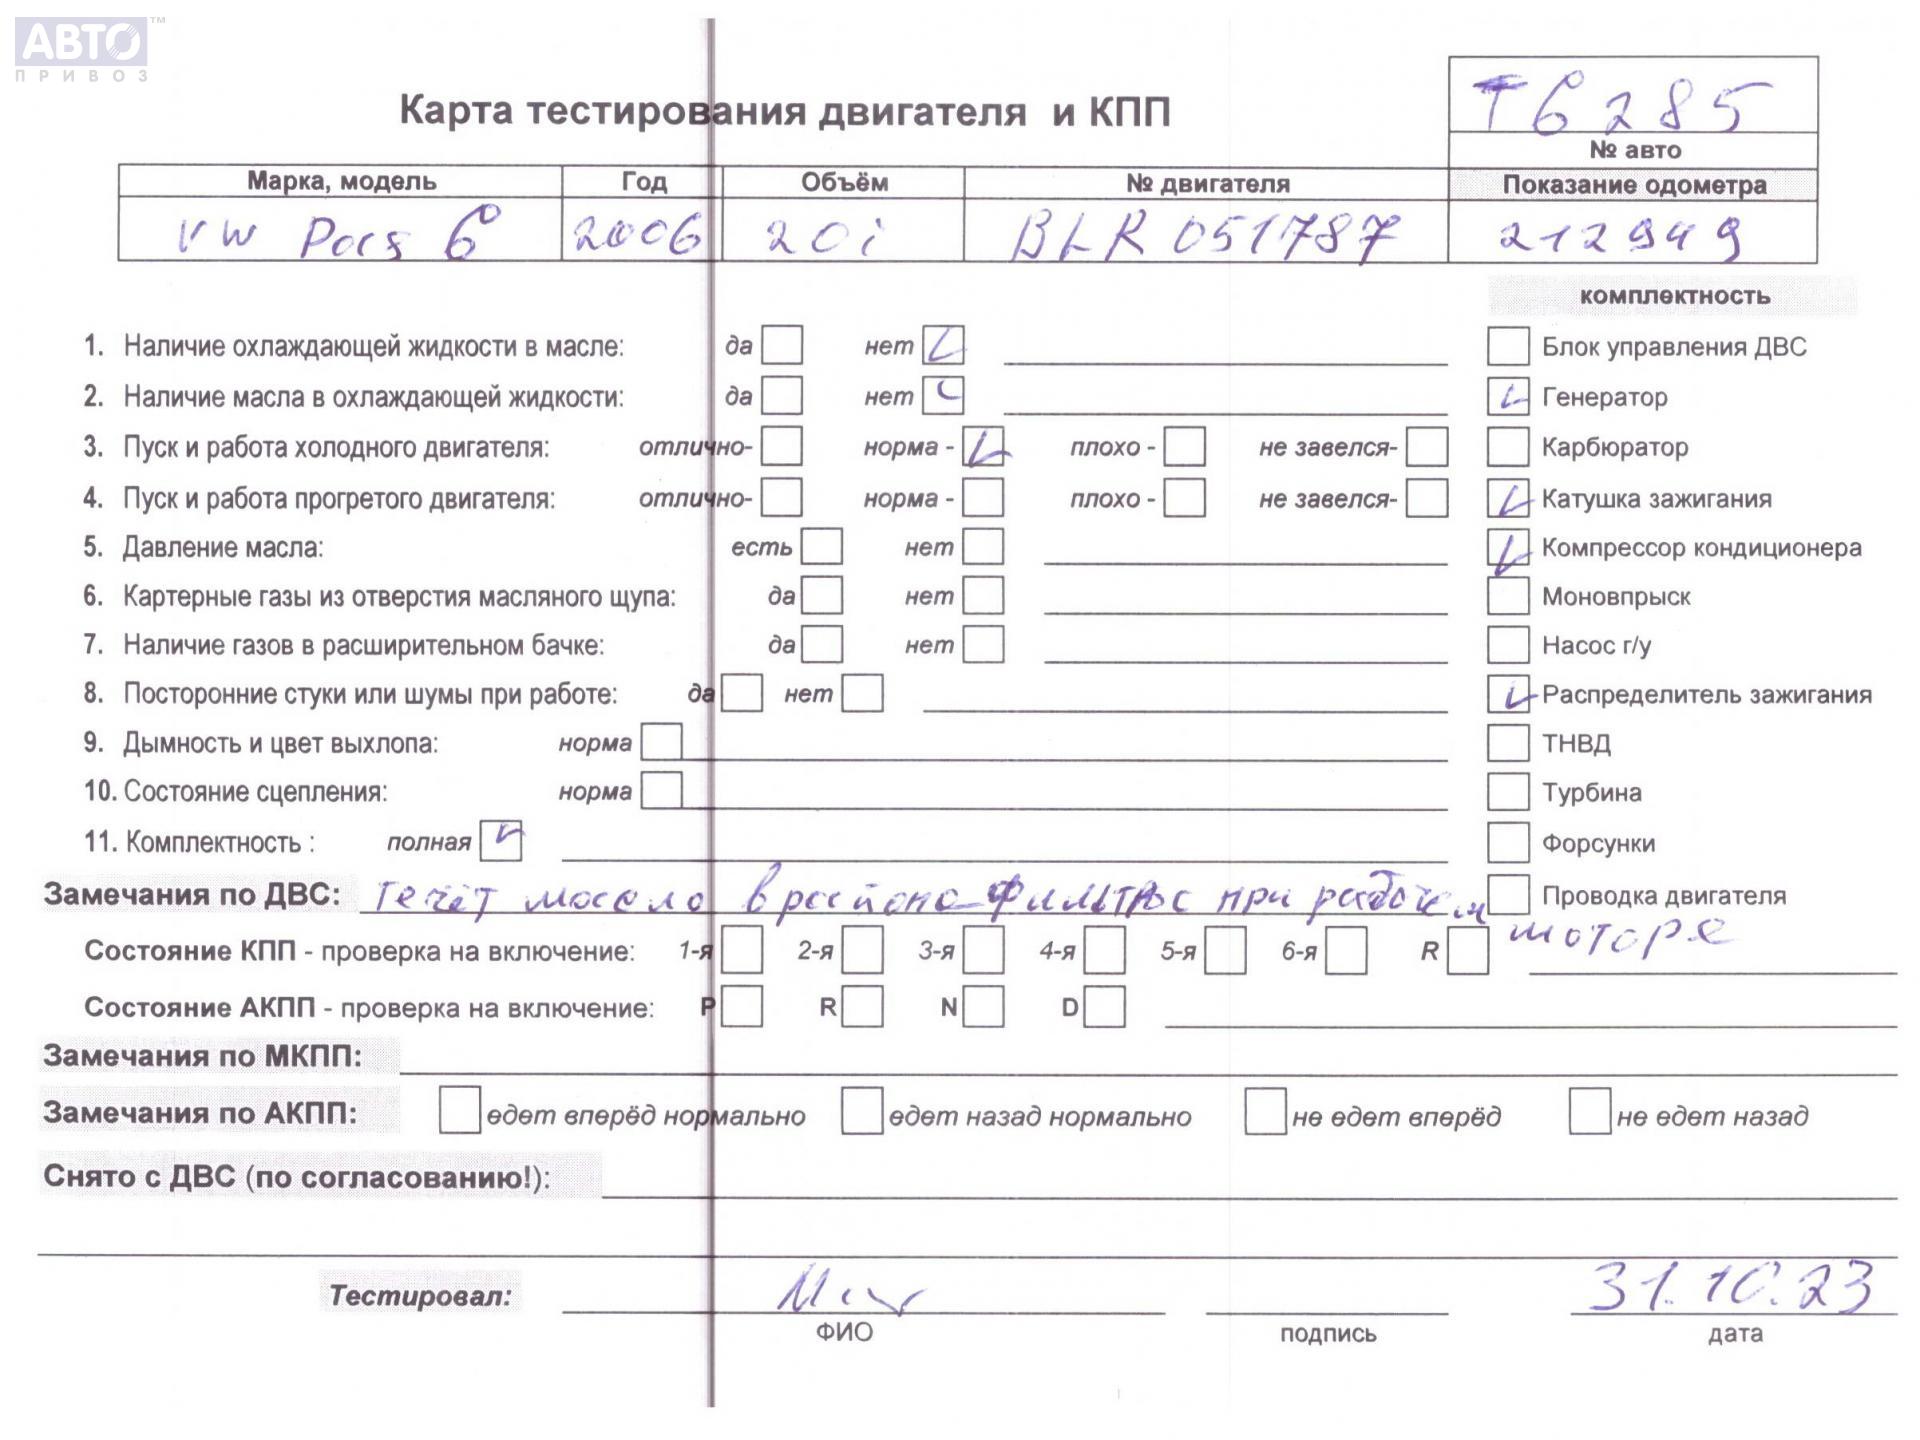 АВТО™
ПРИВОЗ
Карта тестирования двигателя и КПП
Т6285
№ авто
Марка, модель Год Объём № двигателя Показание одометра
VW Pass 6 2006 20i BLR 051787 212949
комплектность
1. Наличие охлаждающей жидкости в масле: да нет Блок управления ДВС
2. Наличие масла в охлаждающей жидкости: да нет Генератор
3. Пуск и работа холодного двигателя: отлично- норма - плохо - не завелся- Карбюратор
4. Пуск и работа прогретого двигателя: отлично- норма - плохо - не завелся- Катушка зажигания
5. Давление масла: есть нет Компрессор кондиционера
6. Картерные газы из отверстия масляного щупа: да нет Моновпрыск
7. Наличие газов в расширительном бачке: да нет Насос г/у
8. Посторонние стуки или шумы при работе: да нет Распределитель зажигания
9. Дымность и цвет выхлопа: норма ТНВД
10. Состояние сцепления: норма Турбина
11. Комплектность : полная Форсунки
Замечания по ДВС: течёт масело в районе фильтра при рабочем Проводка двигателя
моторе
Состояние КПП - проверка на включение: 1-я 2-я 3-я 4-я 5-я 6-я R
Состояние АКПП - проверка на включение: P R N D
Замечания по МКПП:
Замечания по АКПП: едет вперёд нормально едет назад нормально не едет вперёд не едет назад
Снято с ДВС (по согласованию!):
Тестировал: 31.10.23
ФИО подпись дата